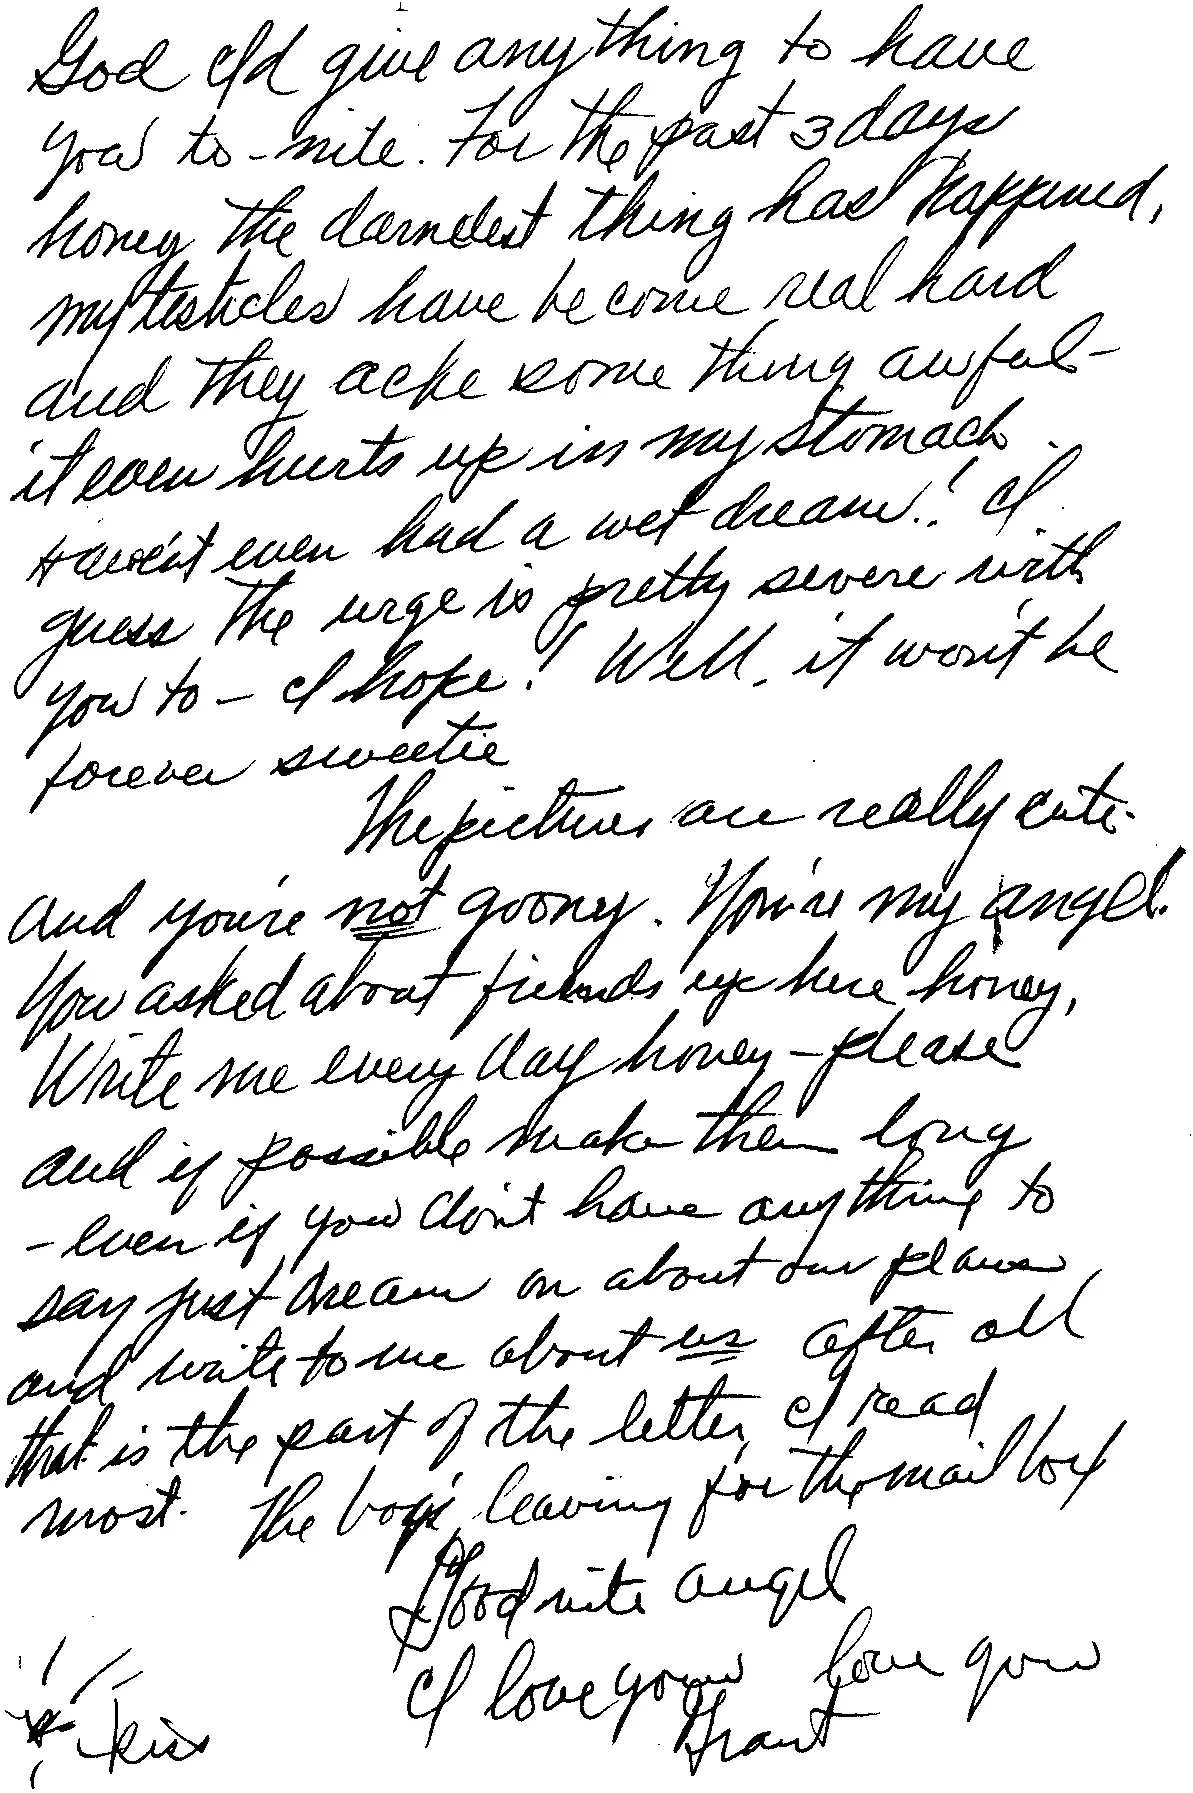 God I'd give anything to have
you to-nite. For the past 3 days
honey the darndest thing has happened,
my testicles have become real hard
and they acke some thing awful-
it even hurts up in my stomach.
Haven't even had a wet dream! I
guess the urge is pretty severe with
you to - I hope! Well, it won't be
forever sweetie
The pictures are really cute.
And you're not goony. You're my angel.
You asked about friends up here honey,
Write me every day honey - please
and if possible make them long
- even if you don't have anything to
say just dream on about our plans
and write to me about us after all
that is the part of the letter I read
most. The boy's leaving for the mail box
Good nite angel
I love you love you
Grant
kiss